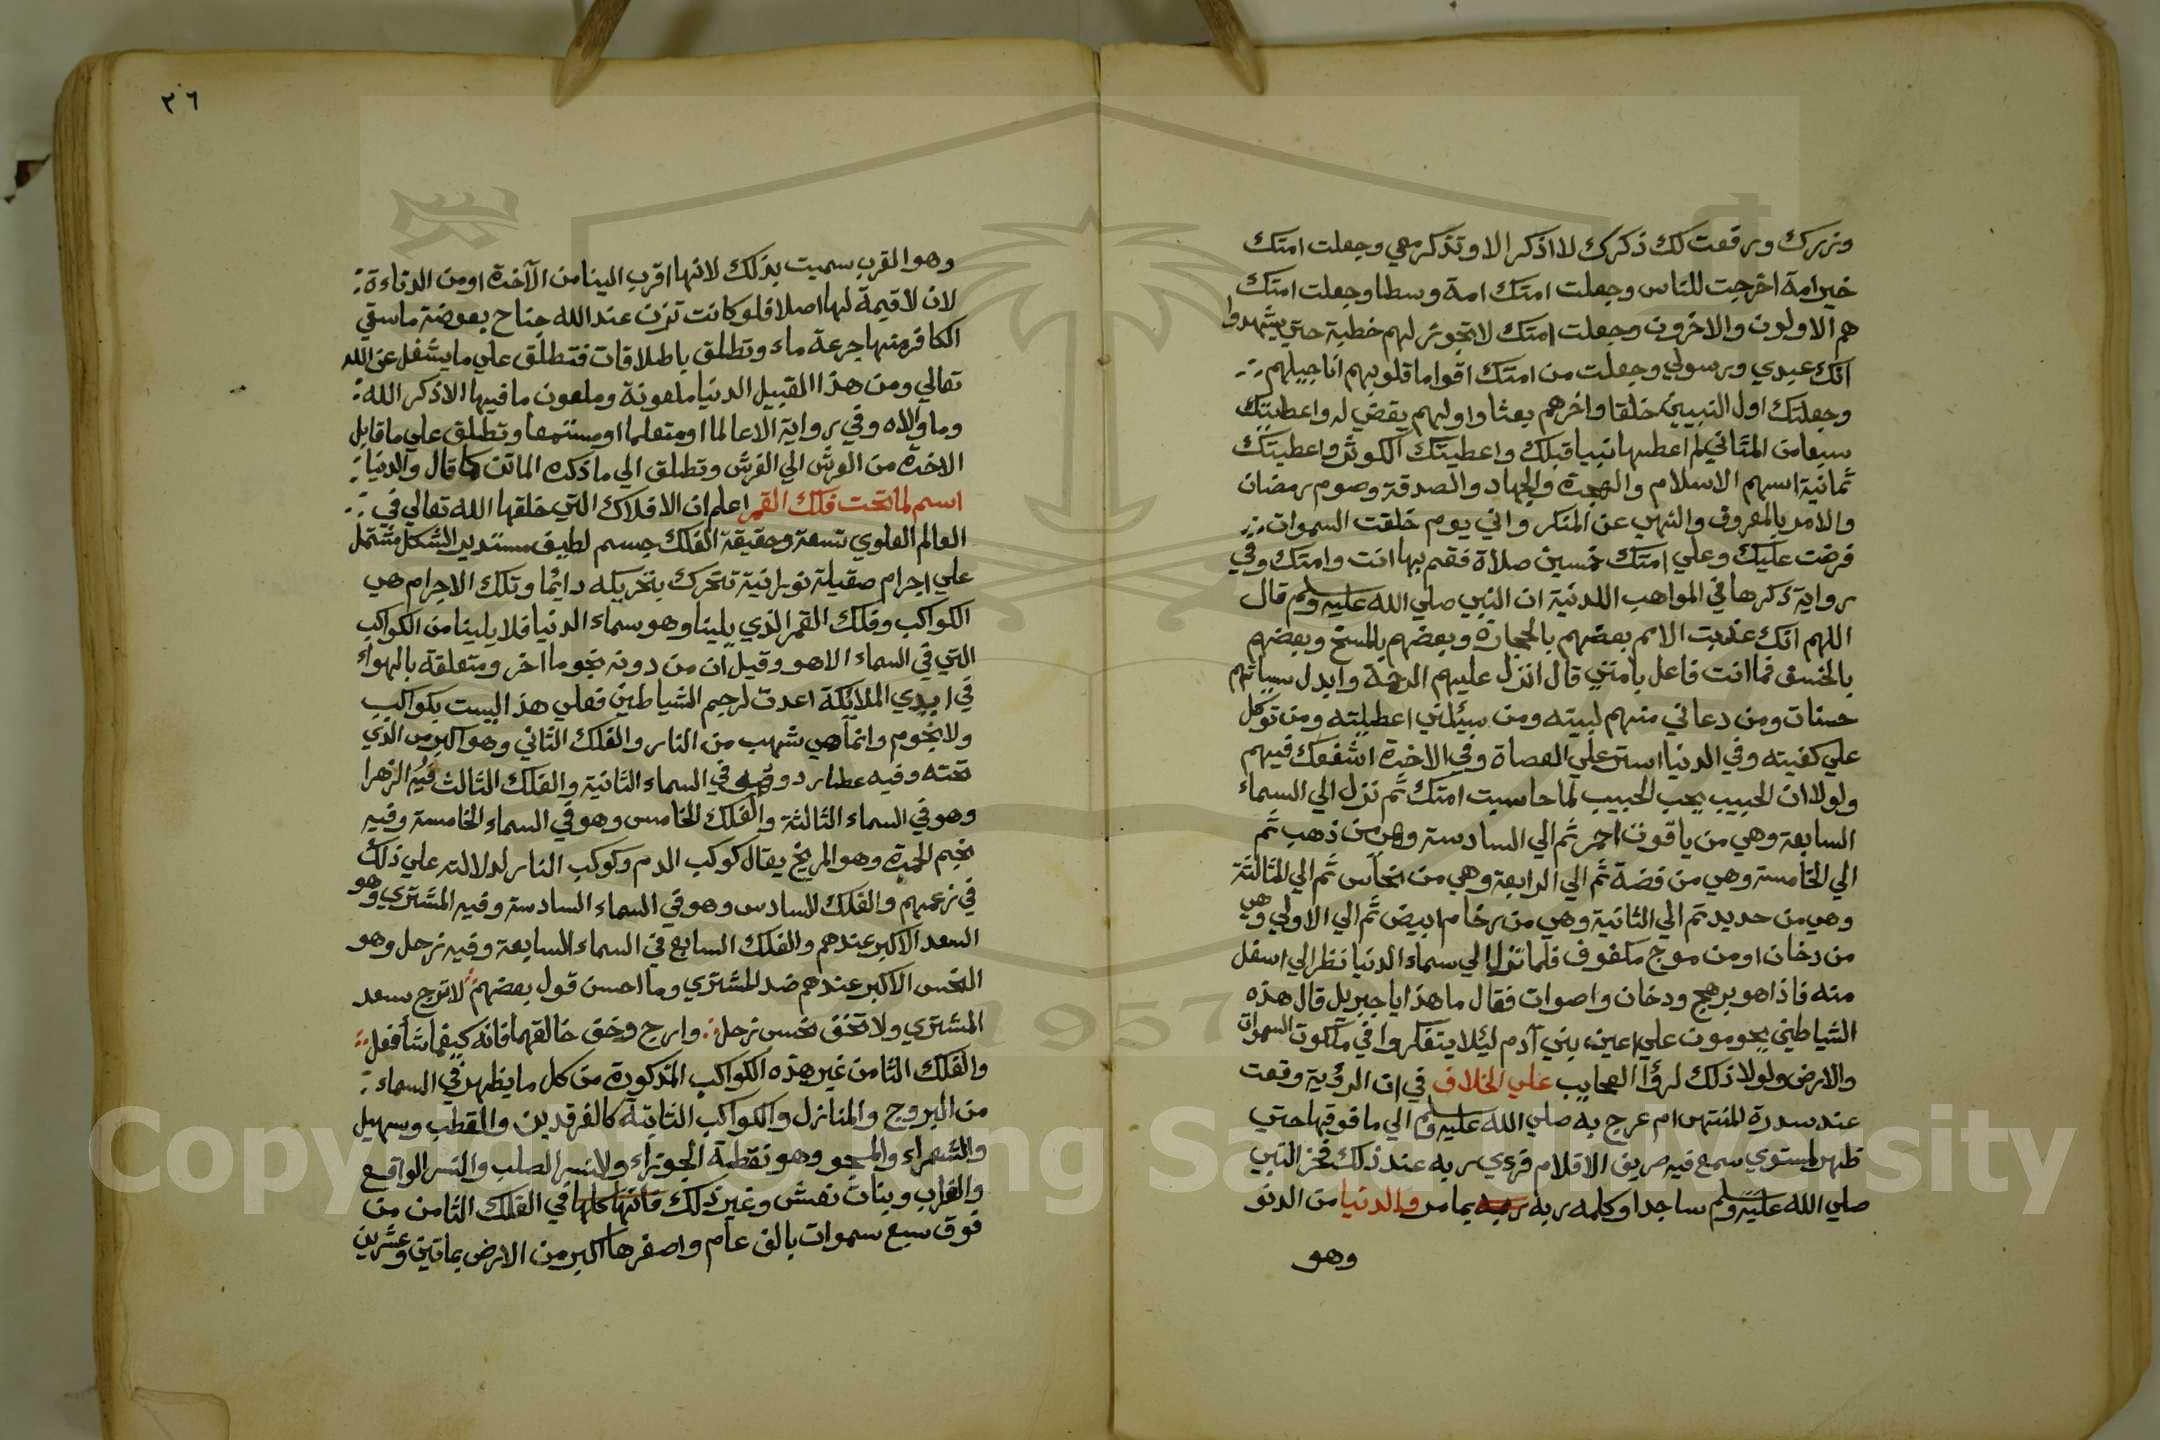 وزرك ورفعت لك ذكرك لا اذكر الا وتذكر معي وجعلت امتك
خير امة اخرجت للناس وجعلت امتك امة وسطا وجعلت امتك
هم الاولون والاخرون وجعلت امتك لا تجوز لهم خطبة حتي يشهدوا
انك عبدي ورسولي وجعلت من امتك اقواما قلوبهم اناجيلهم
وجعلتك اول النبيين خلقا واخرهم بعثا واولهم يقضي له واعطيتك
سبعا من المثاني لم اعطها نبيا قبلك واعطيتك الكوثر واعطيتك
ثمانية اسهم الاسلام والهجرة والجهاد والصدقة وصوم رمضان
والامر بالمعروف والنهي عن المنكر واني يوم خلقت السموات
فرضت عليك وعلي امتك خمسين صلاة فقم بها انت وامتك وفي
رواية ذكرها في المواهب اللدنية ان النبي صلي الله عليه وسلم قال
اللهم انك عذبت الامم بعضهم بالحجارة وبعضهم بالمسخ وبعضهم
بالخسف فما انت فاعل بامتي قال انزل عليهم الرحمة وابدل سياتهم
حسنات ومن دعاني منهم لبيته ومن سيئلني اعطيته ومن توكل
علي كفيته وفي الدنيا استر علي العصاة وفي الاخرة اشفعك فيهم
ولولا ان الحبيب يحب الحبيب لما حاسبت امتك ثم نزل الي السماء
السابعة وهي من ياقوت احمر ثم الي السادسة وهي من ذهب ثم
الي الخامسة وهي من فضة ثم الي الرابعة وهي من نحاس ثم الي الثالثة
وهي من حديد ثم الي الثانية وهي من رخام ابيض ثم الي الاولي وهي
من دخان او من موج مكفوف فلما نزل الي سماء الدنيا نظر الي اسفل
منه فاذا هو برهج ودخان واصوات فقال ما هذا يا جبريل قال هذه
الشياطين يحومون علي اعين بني آدم ليئلا يتفكروا في ملكوت السموات
والارض ولولا ذلك لرؤا العجايب علي الخلاف في ان الرؤية وقعت
عند سدرة المنتهي ام عرج به صلي الله عليه وسلم الي ما فوقها حتي
ظهر لمستوي سمع فيه صريف الاقلام فرءي ربه عند ذلك فخر النبي
صلي الله عليه وسلم ساجدا وكلمه ربه ربه بما مر والدنيا من الدنو
وهو
٣٦
وهو القرب سميت بذلك لانها اقرب الينا من الآخرة او من الدناءة
لان لا قيمة لها اصلا فلو كانت تزن عند الله جناح بعوضة ما سقي
الكافر منها جرعة ماء وتطلق باطلاقات فتطلق علي ما يشغل عن الله
تعالي ومن هذا القبيل الدنيا ملعونة وملعون ما فيها الا ذكر الله
وما والاه وفي رواية الا عالما او متعلما او مستمعا وتطلق علي ما قابل
الاخرة من العرش الي الفرش وتطلق الي ما ذكره الماتن كما قال والدنيا
اسم لما تحت فلك القمر اعلم ان الافلاك التي خلقها الله تعالي في
العالم العلوي تسعة وحقيقة الفلك جسم لطيف مستدير الشكل مشتمل
علي اجرام صقيلة نورانية تتحرك بتحريكه دايما وتلك الاجرام هي
الكواكب وفلك القمر الذي يلينا وهو سماء الدنيا فلا يلينا من الكواكب
التي في السماء الا هو وقيل ان من دونه نجوما اخر ومتعلقة بالهواء
في ايدي الملائكة اعدت لرجم الشياطين فعلي هذا ليست بكواكب
ولا نجوم وانما هي شهب من النار والفلك الثاني وهو اكبر من الذي
تحته وفيه عطارد وهو في السماء الثانية والفلك الثالث فيه الزهرا
وهو في السماء الثالثة والفلك الخامس وهو في السماء الخامسة وفيه
نجم الحمرة وهو المريخ يقال كوكب الدم وكوكب النار لدلالته علي ذلك
في زعمهم والفلك السادس وهو في السماء السادسة وفيه المشتري وهو
السعد الاكبر عندهم والفلك السابع في السماء السابعة وفيه زحل وهو
النحس الاكبر عندهم ضد المشتري وما احسن قول بعضهم لا ترج سعد
المشتري ولا تخف نحس زحل وارج وخف خالقهما فانه كيفما شأ فعل
والفلك الثامن غير هذه الكواكب المذكورة من كل ما يظهر في السماء
من البروج والمنازل والكواكب الثابتة كالفرقدين والقطب وسهيل
والشعراء والمحو وهو نقطة الجوزاء ولا نسر الصلب والنسر الواقع
والغراب وبنات نعش وغير ذلك فانها كلها في الفلك الثامن من
فوق سبع سموات بالف عام واصغرها اكبر من الارض بماتين وعشرين
Copyright © King Saud University
1957